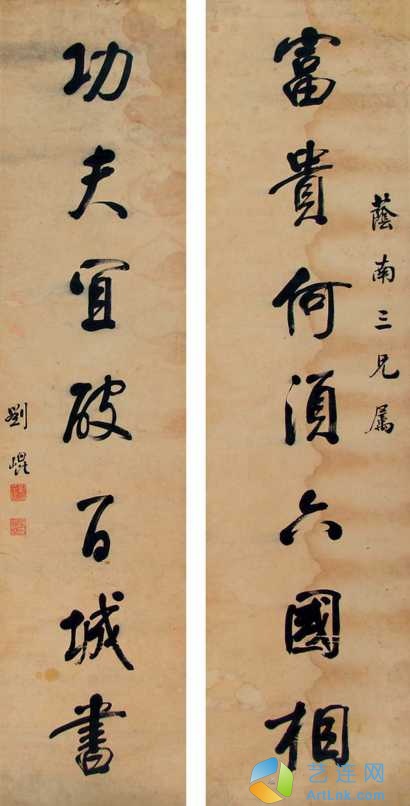 蔭南三兄属
富貴何須六國相
功夫宜破百城書
劉崐
艺连网
ArtLink.com